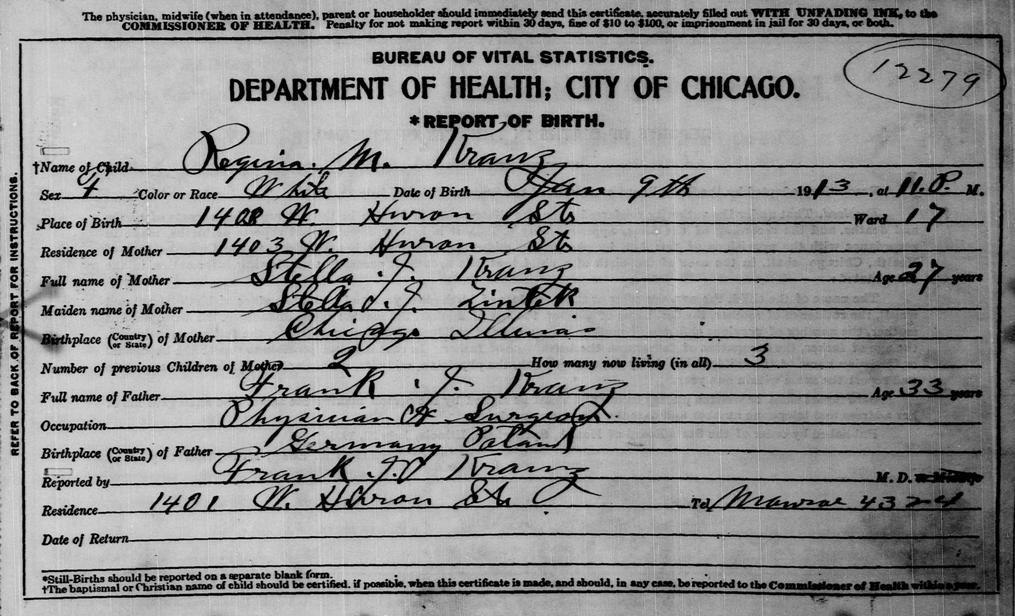 The physician, midwife (when in attendance), parent or householder should immediately send this certificate, accurately filled out WITH UNFADING INK, to the
COMMISSIONER OF HEALTH. Penalty for not making report within 30 days, fine of $10 to $100, or imprisonment in jail for 30 days, or both.
BUREAU OF VITAL STATISTICS.
12279
DEPARTMENT OF HEALTH; CITY OF CHICAGO.
*REPORT OF BIRTH.
†Name of Child Regina. M. Kranz
Sex Color or Race White Date of Birth Jan 9th 1913, at 11.P. M.
Place of Birth 1408 W. Huron St Ward 17
Residence of Mother 1403 W. Huron St
Full name of Mother Stella J. Kranz Age 27 years
Maiden name of Mother Stella J. Zintek
Birthplace (Country or State) of Mother Chicago Illinois
Number of previous Children of Mother 2 How many now living (in all) 3
Full name of Father Frank J. Kranz Age 33 years
Occupation Physician & Surgeon.
Birthplace (Country or State) of Father Germany Poland
Reported by Frank J. Kranz M. D. or Midwife
Residence 1401 W. Huron St. Tel Monroe 4324
Date of Return
*Still-Births should be reported on a separate blank form.
†The baptismal or Christian name of child should be certified, if possible, when this certificate is made, and should, in any case, be reported to the Commissioner of Health within a year.
REFER TO BACK OF REPORT FOR INSTRUCTIONS.